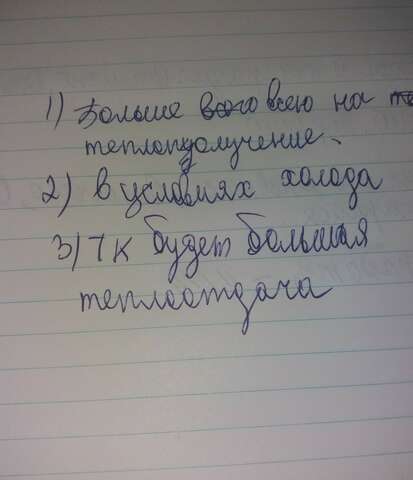 1) Больше всего всею на те
теплополучение.
2) в условиях холода
3) Т к будет большая
теплоотдача